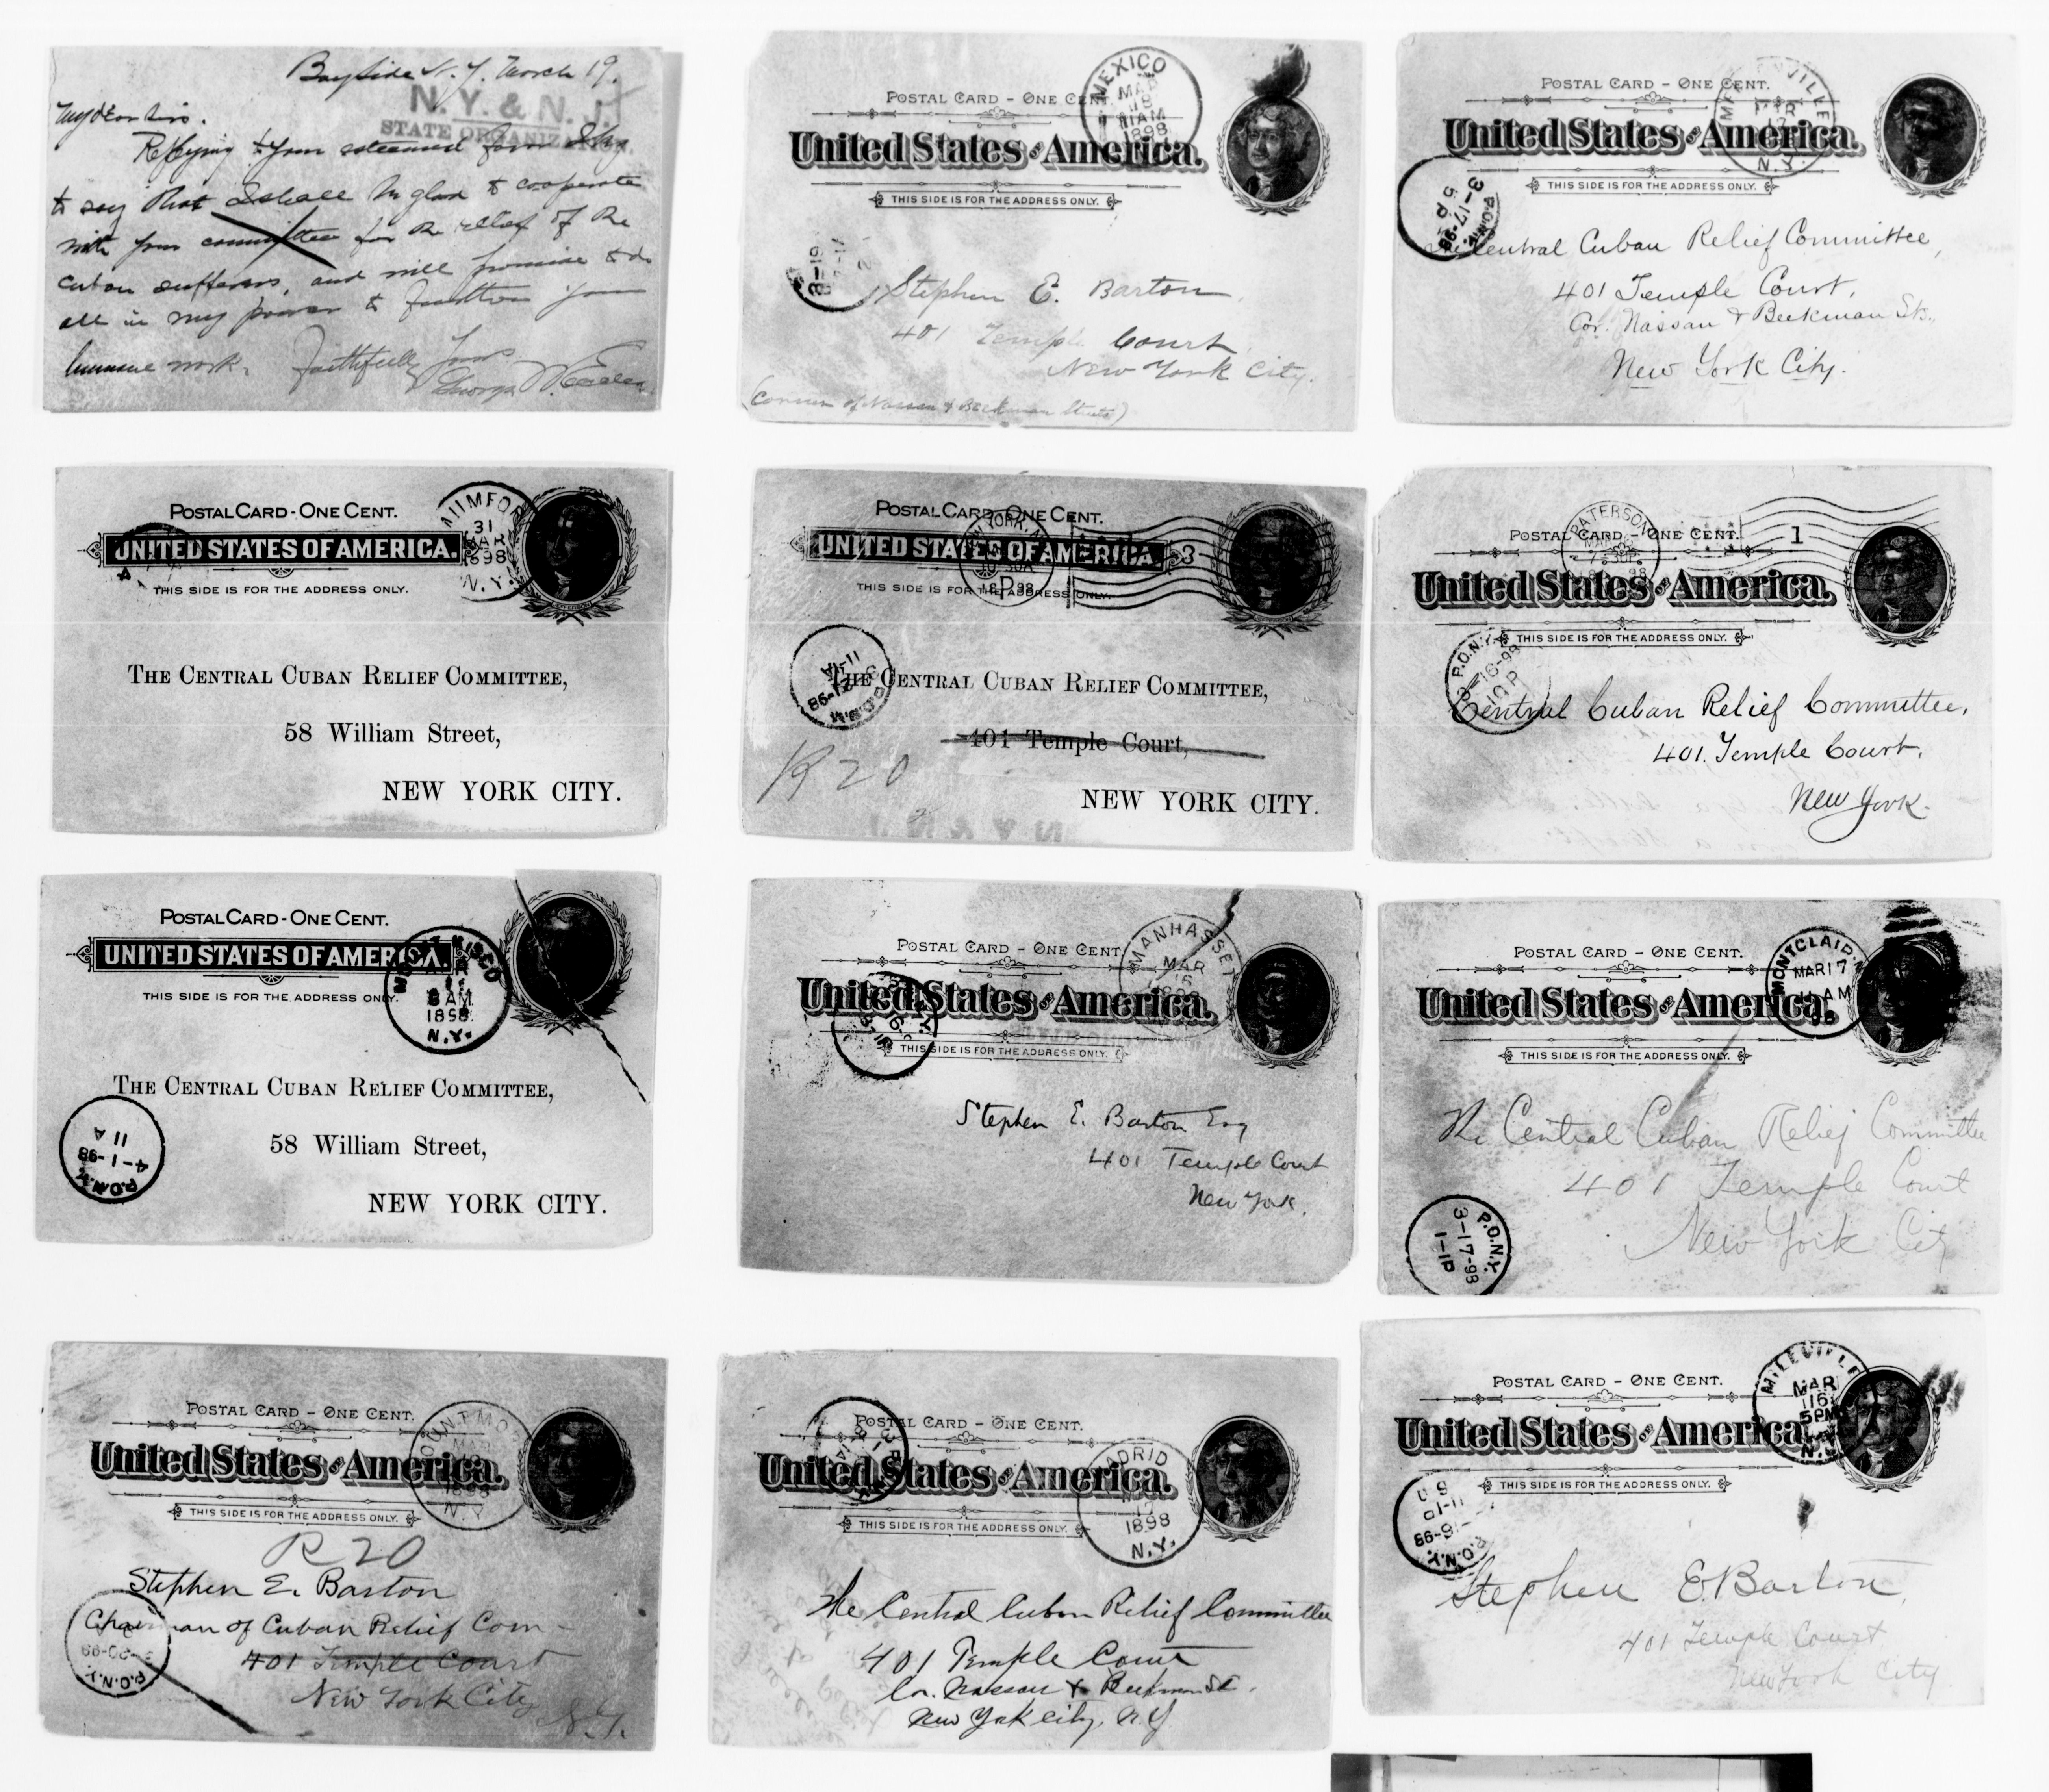 Bayside N. Y. March 19.
N. Y. & N. J.
STATE ORGANIZA
My dear Sir.
Replying to your esteemed favor I beg
to say that I shall be glad to cooperate
with your committee for the relief of the
Cuban sufferers, and will promise to do
all in my power to further your
humane work. Faithfully Yours
George W.
MEXICO
MAR
18
11AM
1898
POSTAL CARD - ONE CENT.
United States of America.
THIS SIDE IS FOR THE ADDRESS ONLY.
Stephen E. Barton
401 Temple Court
New York City.
(Corner of Nassau & Beekman Streets)
POSTAL CARD - ONE CENT.
VILLE
N.Y.
United States of America.
THIS SIDE IS FOR THE ADDRESS ONLY.
3-17-98
5 P
P.O.N.Y.
Central Cuban Relief Committee,
401 Temple Court,
Cor. Nassau & Beekman Sts.,
New York City.
POSTAL CARD - ONE CENT.
UNITED STATES OF AMERICA.
31
MAR
1898
N.Y.
THIS SIDE IS FOR THE ADDRESS ONLY.
THE CENTRAL CUBAN RELIEF COMMITTEE,
58 William Street,
NEW YORK CITY.
POSTAL CARD - ONE CENT.
NEW YORK, N.Y.
UNITED STATES OF AMERICA.
3
THIS SIDE IS FOR THE ADDRESS ONLY.
THE CENTRAL CUBAN RELIEF COMMITTEE,
401 Temple Court,
R 20
NEW YORK CITY.
PATERSON
1
POSTAL CARD - ONE CENT.
United States of America.
THIS SIDE IS FOR THE ADDRESS ONLY.
P.O.N.Y.
16-98
10 P
Central Cuban Relief Committee,
401 Temple Court,
New York.
POSTAL CARD - ONE CENT.
UNITED STATES OF AMERICA.
KISCO
8 AM
1898
N.Y.
THIS SIDE IS FOR THE ADDRESS ONLY.
THE CENTRAL CUBAN RELIEF COMMITTEE,
11 A
4-1-98
P.O.N.Y.
58 William Street,
NEW YORK CITY.
MANHASSET
MAR
16
POSTAL CARD - ONE CENT
United States of America.
THIS SIDE IS FOR THE ADDRESS ONLY.
Stephen E. Barton Esq
401 Temple Court
New York.
MONTCLAIR, N
MAR 17
11 AM
98
POSTAL CARD - ONE CENT.
United States of America.
THIS SIDE IS FOR THE ADDRESS ONLY.
The Central Cuban Relief Committee
401 Temple Court
New York City
P.O.N.Y.
3-17-98
1-1P
POSTAL CARD - ONE CENT.
United States of America.
N.Y.
THIS SIDE IS FOR THE ADDRESS ONLY.
R 20
Stephen E. Barton
Chairman of Cuban Relief Com-
401 Temple Court
New York City
N.Y.
P.O.N.Y.
POSTAL CARD - ONE CENT.
United States of America.
ADRID
17
1898
N.Y.
THIS SIDE IS FOR THE ADDRESS ONLY.
The Central Cuban Relief Committee
401 Temple Court
Co. Nassau & Beekman St.
New York City, N.Y
POSTAL CARD - ONE CENT.
MILLVILLE
MAR
16
5PM
N.J.
United States of America.
THIS SIDE IS FOR THE ADDRESS ONLY.
P.O.N.Y.
Stephen E. Barton,
401 Temple Court
New York City